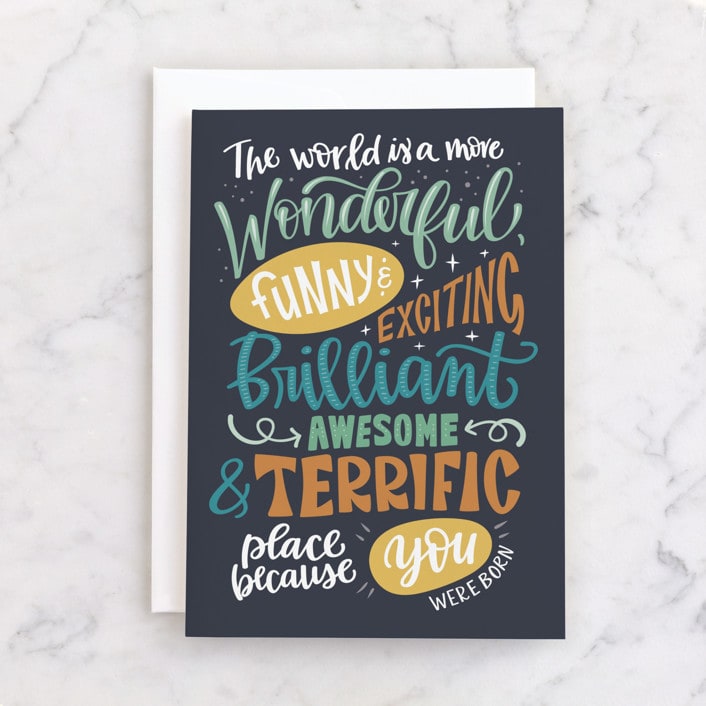 The world is a more
Wonderful,
FUNNY &
EXCITING
Brilliant
AWESOME
& TERRIFIC
place you
because WERE BORN